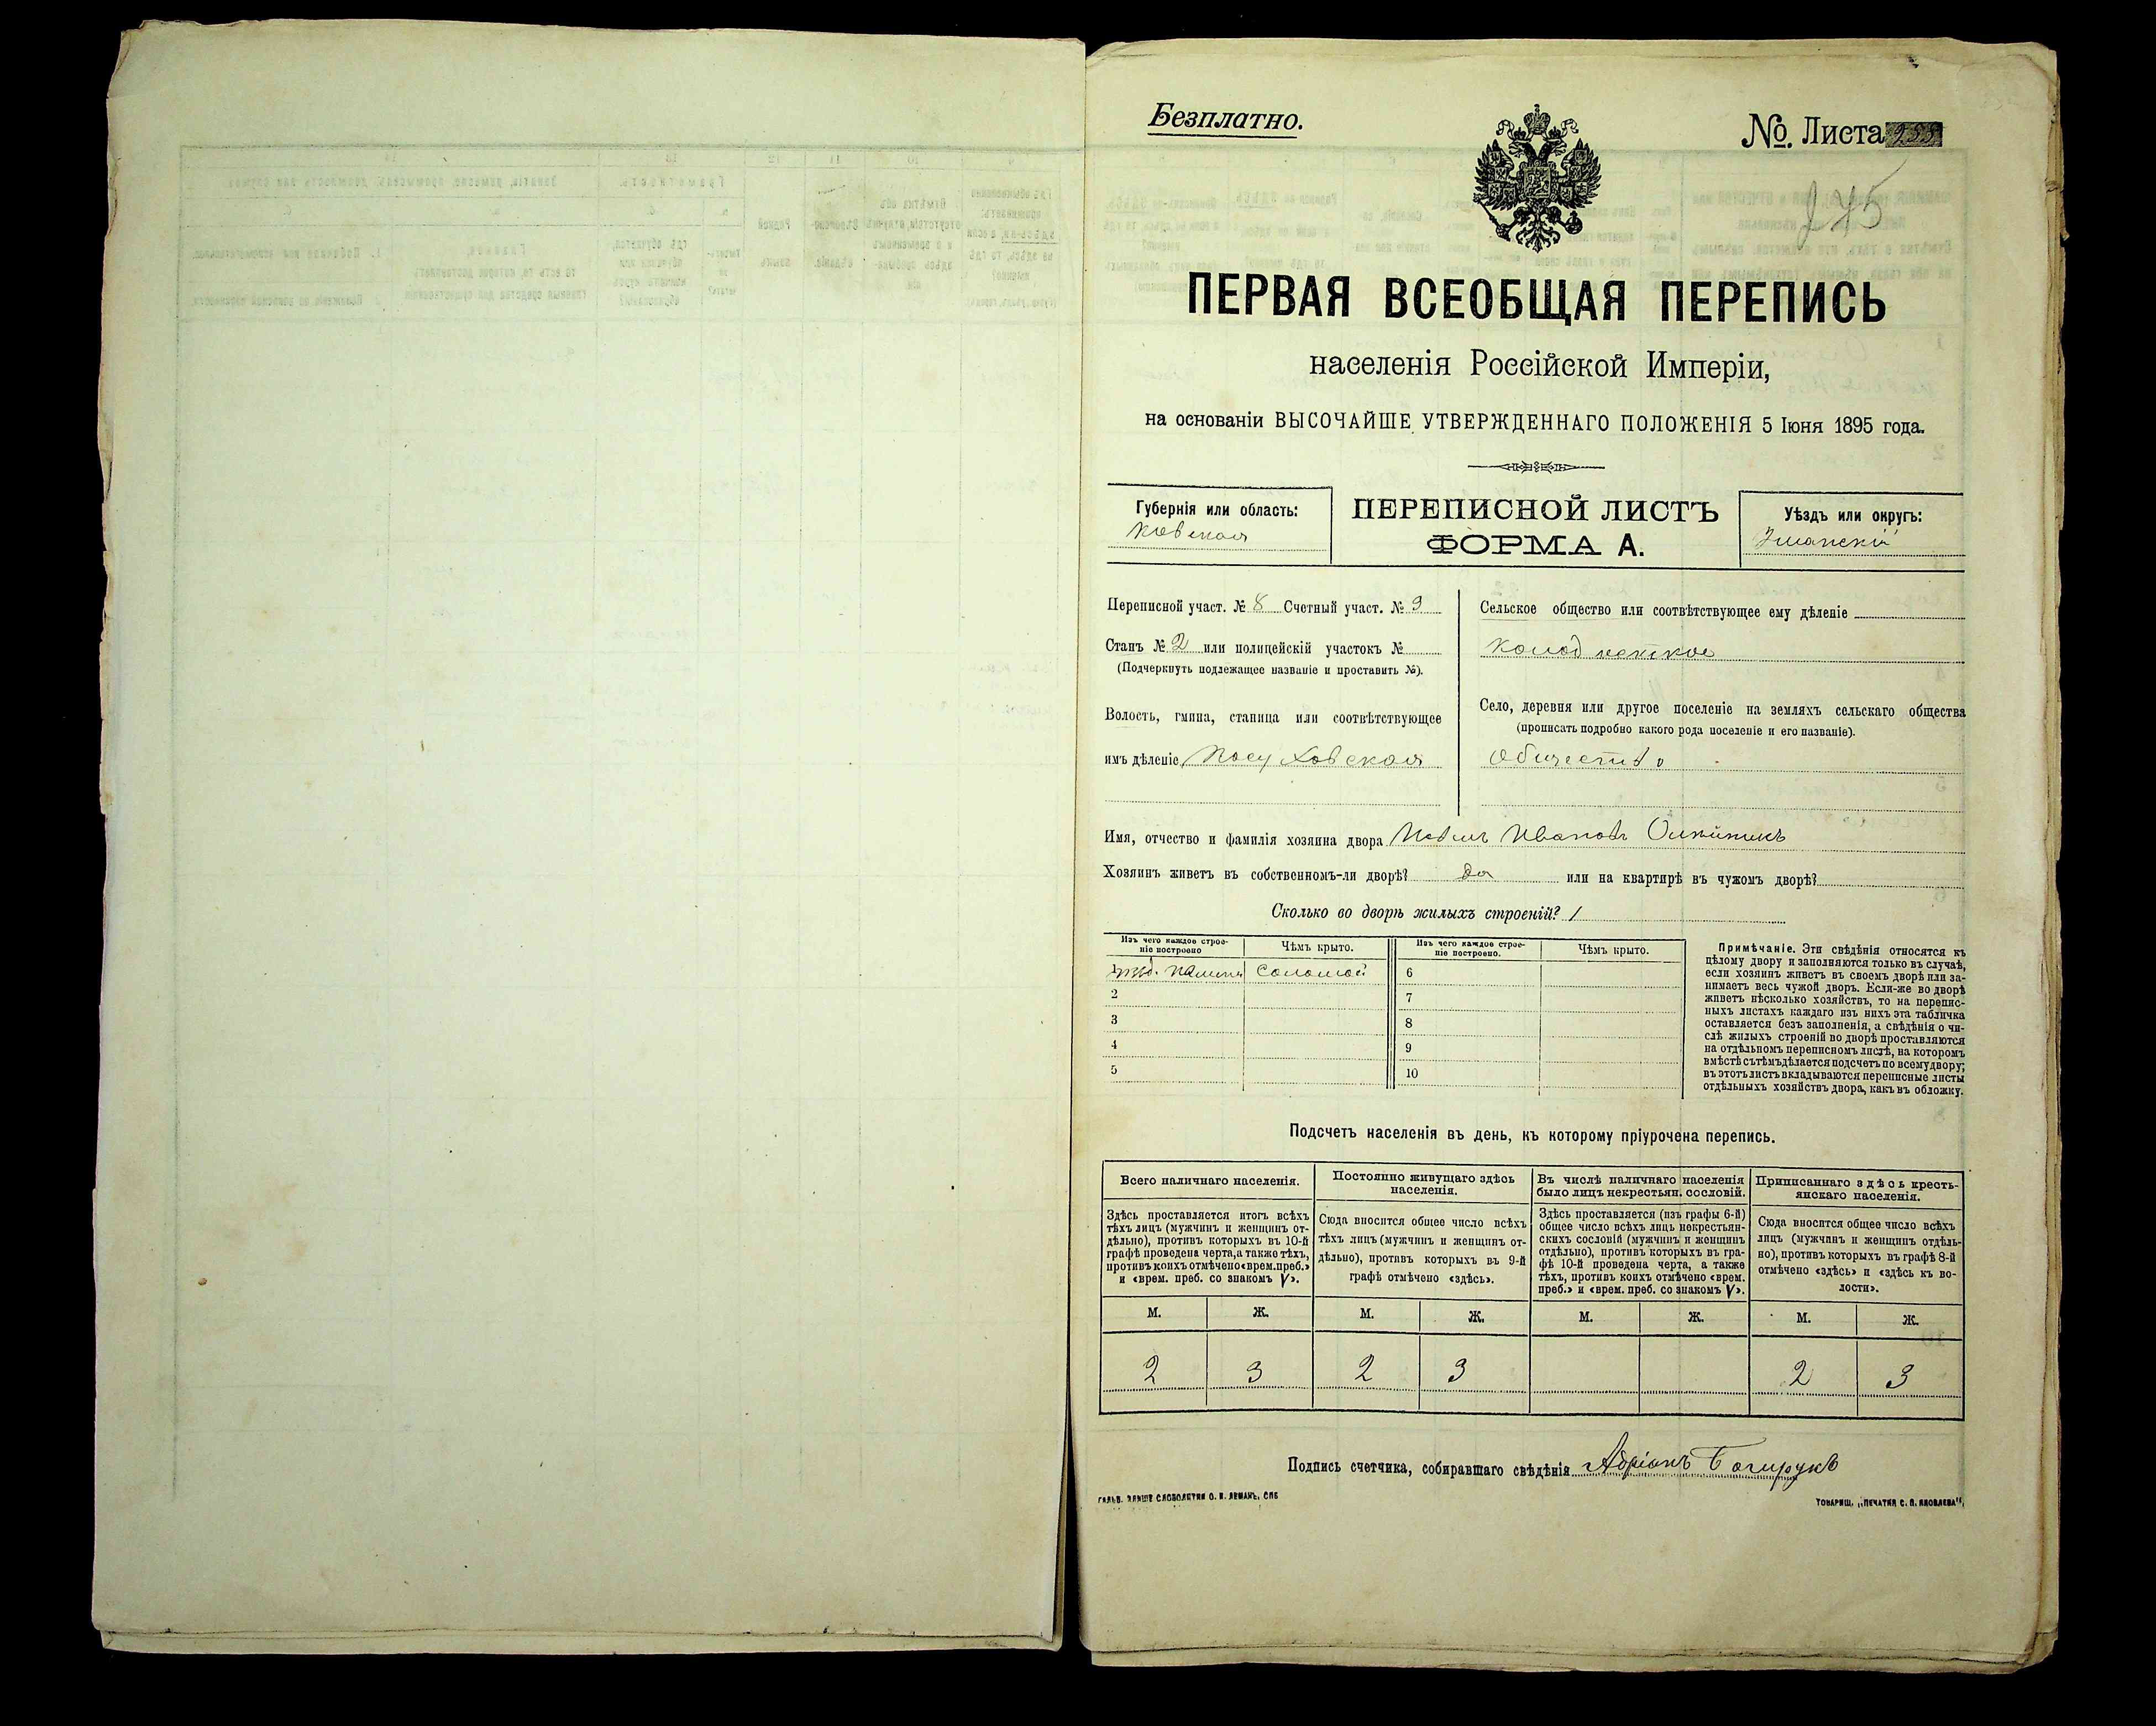 Безплатно.
№. Листа 255
275
ПЕРВАЯ ВСЕОБЩАЯ ПЕРЕПИСЬ
населенія Россійской Имперіи,
на основаніи ВЫСОЧАЙШЕ УТВЕРЖДЕННАГО ПОЛОЖЕНІЯ 5 Іюня 1895 года.
Губернія или область:
Кіевская
ПЕРЕПИСНОЙ ЛИСТЪ
ФОРМА А.
Уѣздъ или округъ:
Уманскій
Переписной участ. № 8 Счетный участ. № 9
Станъ № 2 или полицейскій участокъ №
(Подчеркнуть подлежащее названіе и проставить №).
Волость, гмина, станица или соотвѣтствующее
имъ дѣленіе Посуховская
Сельское общество или соотвѣтствующее ему дѣленіе
Село, деревня или другое поселеніе на земляхъ сельскаго общества
(прописать подробно какого рода поселеніе и его названіе).
общество
Имя, отчество и фамилія хозяина двора Ивановъ Олійникъ
Хозяинъ живетъ въ собственномъ-ли дворѣ? да или на квартирѣ въ чужомъ дворѣ?
Сколько во дворѣ жилыхъ строеній? 1
Изъ чего каждое строе-
ніе построено
Чѣмъ крыто.
Изъ чего каждое строе-
ніе построено.
Чѣмъ крыто.
соломой
6
2
7
3
8
4
9
5
10
Примѣчаніе. Эти свѣдѣнія относятся къ
цѣлому двору и заполняются только въ случаѣ,
если хозяинъ живетъ въ своемъ дворѣ или за-
нимаетъ весь чужой дворъ. Если-же во дворѣ
живетъ нѣсколько хозяйствъ, то на перепис-
ныхъ листахъ каждаго изъ нихъ эта табличка
оставляется безъ заполненія, а свѣдѣнія о чи-
слѣ жилыхъ строеній во дворѣ проставляются
на отдѣльномъ переписномъ листѣ, на которомъ
вмѣстѣ съ тѣмъ дѣлается подсчетъ по всему двору;
въ этотъ листъ вкладываются переписные листы
отдѣльныхъ хозяйствъ двора, какъ въ обложку.
Подсчетъ населенія въ день, къ которому пріурочена перепись.
Всего наличнаго населенія.
Здѣсь проставляется итогъ всѣхъ
тѣхъ лицъ (мужчинъ и женщинъ от-
дѣльно), противъ которыхъ въ 10-й
графѣ проведена черта, а также тѣхъ,
противъ коихъ отмѣчено «врем. преб.»
и «врем. преб. со знакомъ V».
Постоянно живущаго здѣсь
населенія.
Сюда вносится общее число всѣхъ
тѣхъ лицъ (мужчинъ и женщинъ от-
дѣльно), противъ которыхъ въ 9-й
графѣ отмѣчено «здѣсь».
Въ числѣ наличнаго населенія
было лицъ некрестьян. сословій.
Здѣсь проставляется (изъ графы 6-й)
общее число всѣхъ лицъ некрестьян-
скихъ сословій (мужчинъ и женщинъ
отдѣльно), противъ которыхъ въ гра-
фѣ 10-й проведена черта, а также
тѣхъ, противъ коихъ отмѣчено «врем.
преб.» и «врем. преб. со знакомъ V».
Приписаннаго здѣсь кресть-
янскаго населенія.
Сюда вносится общее число всѣхъ
лицъ (мужчинъ и женщинъ отдѣль-
но), противъ которыхъ въ графѣ 8-й
отмѣчено «здѣсь» и «здѣсь къ во-
лости».
М. Ж. М. Ж. М. Ж. М. Ж.
2 3 2 3 2 3
Подпись счетчика, собиравшаго свѣдѣнія Адріанъ
ГАЛЬВ. КЛИШЕ СЛОВОЛИТНИ О. И. ЛЕМАНЪ, СПБ
ТОВАРИЩ. „ПЕЧАТНЯ С. П. ЯКОВЛЕВА",